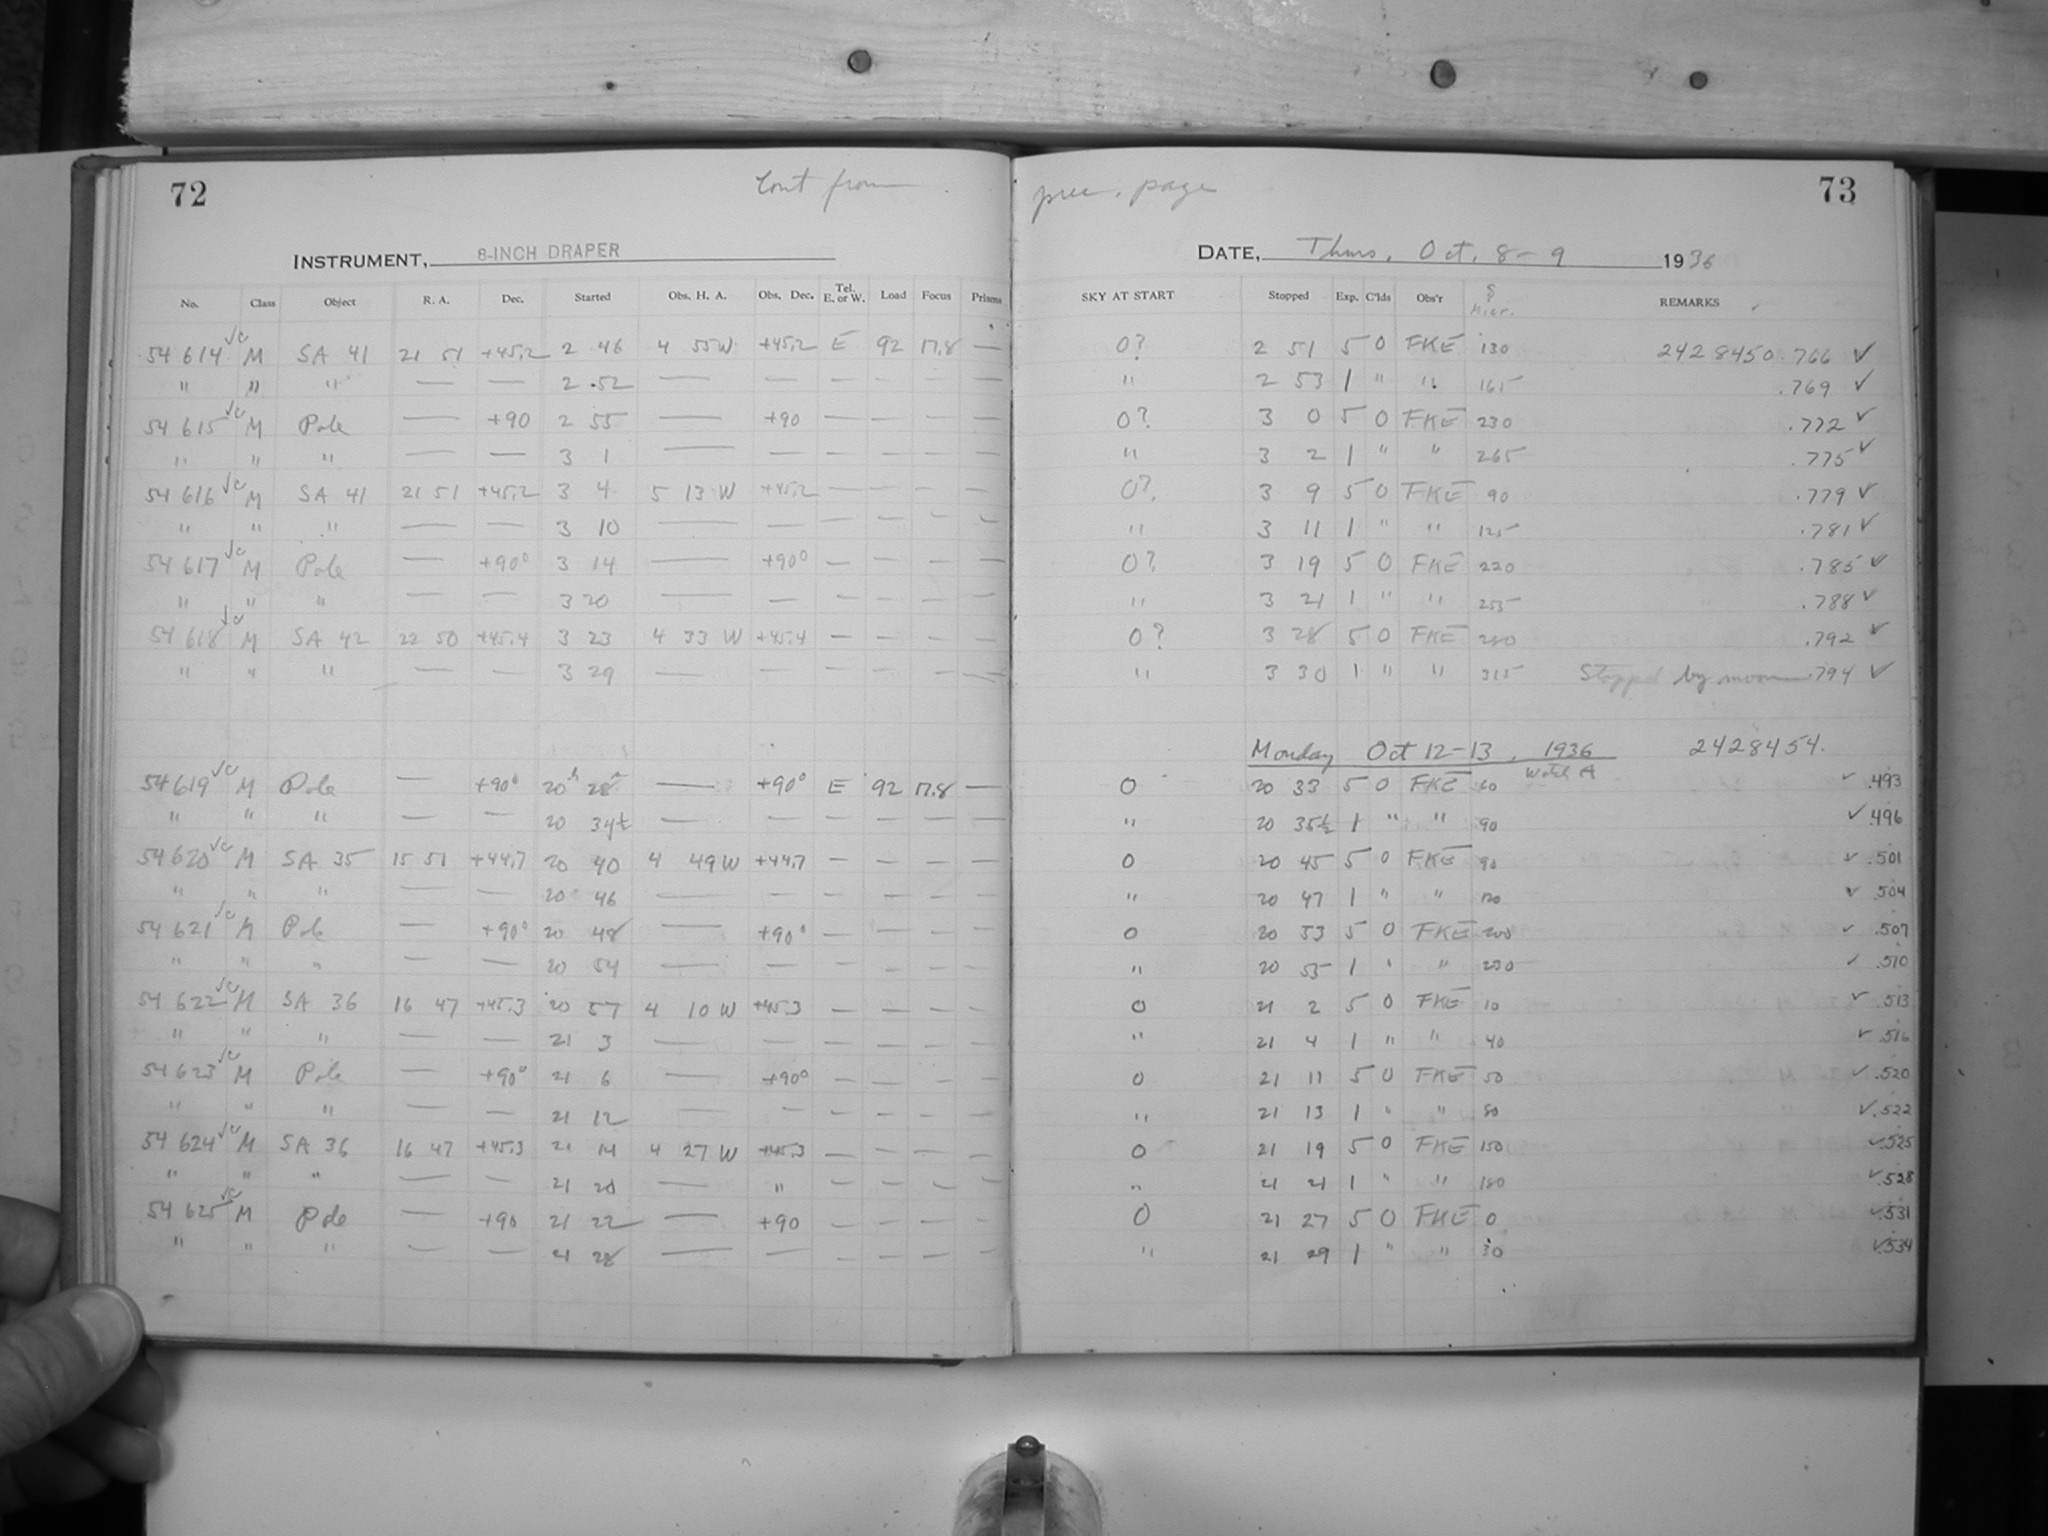 72 Cont from prev. page 73
INSTRUMENT, 8-INCH DRAPER DATE, Thurs. Oct. 8-9 1936
No. Class Object R. A. Dec. Started Obs. H. A. Obs. Dec. Tel. E. or W. Load Focus Prisms SKY AT START Stopped Exp. C'lds Obs'r S Micr. REMARKS
54 614 √c M SA 41 21 51 +45.2 2 46 4 55 W +45.2 E 92 17.8 — 0? 2 51 5 0 FKE 130 2428450.766 ✓
" " " — — 2 52 — — — — — — " 2 53 1 " " 165 .769 ✓
54 615 √c M Pole — +90 2 55 — +90 — — — — 0? 3 0 5 0 FKE 230 .772 ✓
" " " — — 3 1 — — — — — — " 3 2 1 " " 265 .775 ✓
54 616 √c M SA 41 21 51 +45.2 3 4 5 13 W +45.2 — — — — 0? 3 9 5 0 FKE 90 .779 ✓
" " " — — 3 10 — — — — — — " 3 11 1 " " 125 .781 ✓
54 617 √c M Pole — +90° 3 14 — +90° — — — — 0? 3 19 5 0 FKE 220 .785 ✓
" " " — — 3 20 — — — — — — " 3 21 1 " " 255 .788 ✓
54 618 √c M SA 42 22 50 +45.4 3 23 4 33 W +45.4 — — — — 0? 3 28 5 0 FKE 280 .792 ✓
" " " — — 3 29 — — — — — — " 3 30 1 " " 315 Stopped by moon .794 ✓
Monday Oct 12-13, 1936 2428454.
Watch A
54 619 √c M Pole — +90° 20h 28m — +90° E 92 17.8 — 0 20 33 5 0 FKE 60 ✓ .493
" " " — — 20 34½ — — — — — — " 20 35½ 1 " " 90 ✓ .496
54 620 √c M SA 35 15 51 +44.7 20 40 4 49 W +44.7 — — — — 0 20 45 5 0 FKE 90 ✓ .501
" " " — — 20 46 — — — — — — " 20 47 1 " " 120 ✓ .504
54 621 √c M Pole — +90° 20 48 — +90° — — — — 0 20 53 5 0 FKE 200 ✓ .507
" " " — — 20 54 — — — — — — " 20 55 1 " " 230 ✓ .510
54 622 √c M SA 36 16 47 +45.3 20 57 4 10 W +45.3 — — — — 0 21 2 5 0 FKE 10 ✓ .513
" " " — — 21 3 — — — — — — " 21 4 1 " " 40 ✓ .516
54 623 √c M Pole — +90° 21 6 — +90° — — — — 0 21 11 5 0 FKE 50 ✓ .520
" " " — — 21 12 — — — — — — " 21 13 1 " " 80 ✓ .522
54 624 √c M SA 36 16 47 +45.3 21 14 4 27 W +45.3 — — — — 0 21 19 5 0 FKE 150 ✓ .525
" " " — — 21 20 — " — — — — " 21 21 1 " " 180 ✓ .528
54 625 √c M Pole — +90 21 22 — +90 — — — — 0 21 27 5 0 FKE 0 ✓ .531
" " " — — 21 28 — — — — — — " 21 29 1 " " 30 ✓ .534